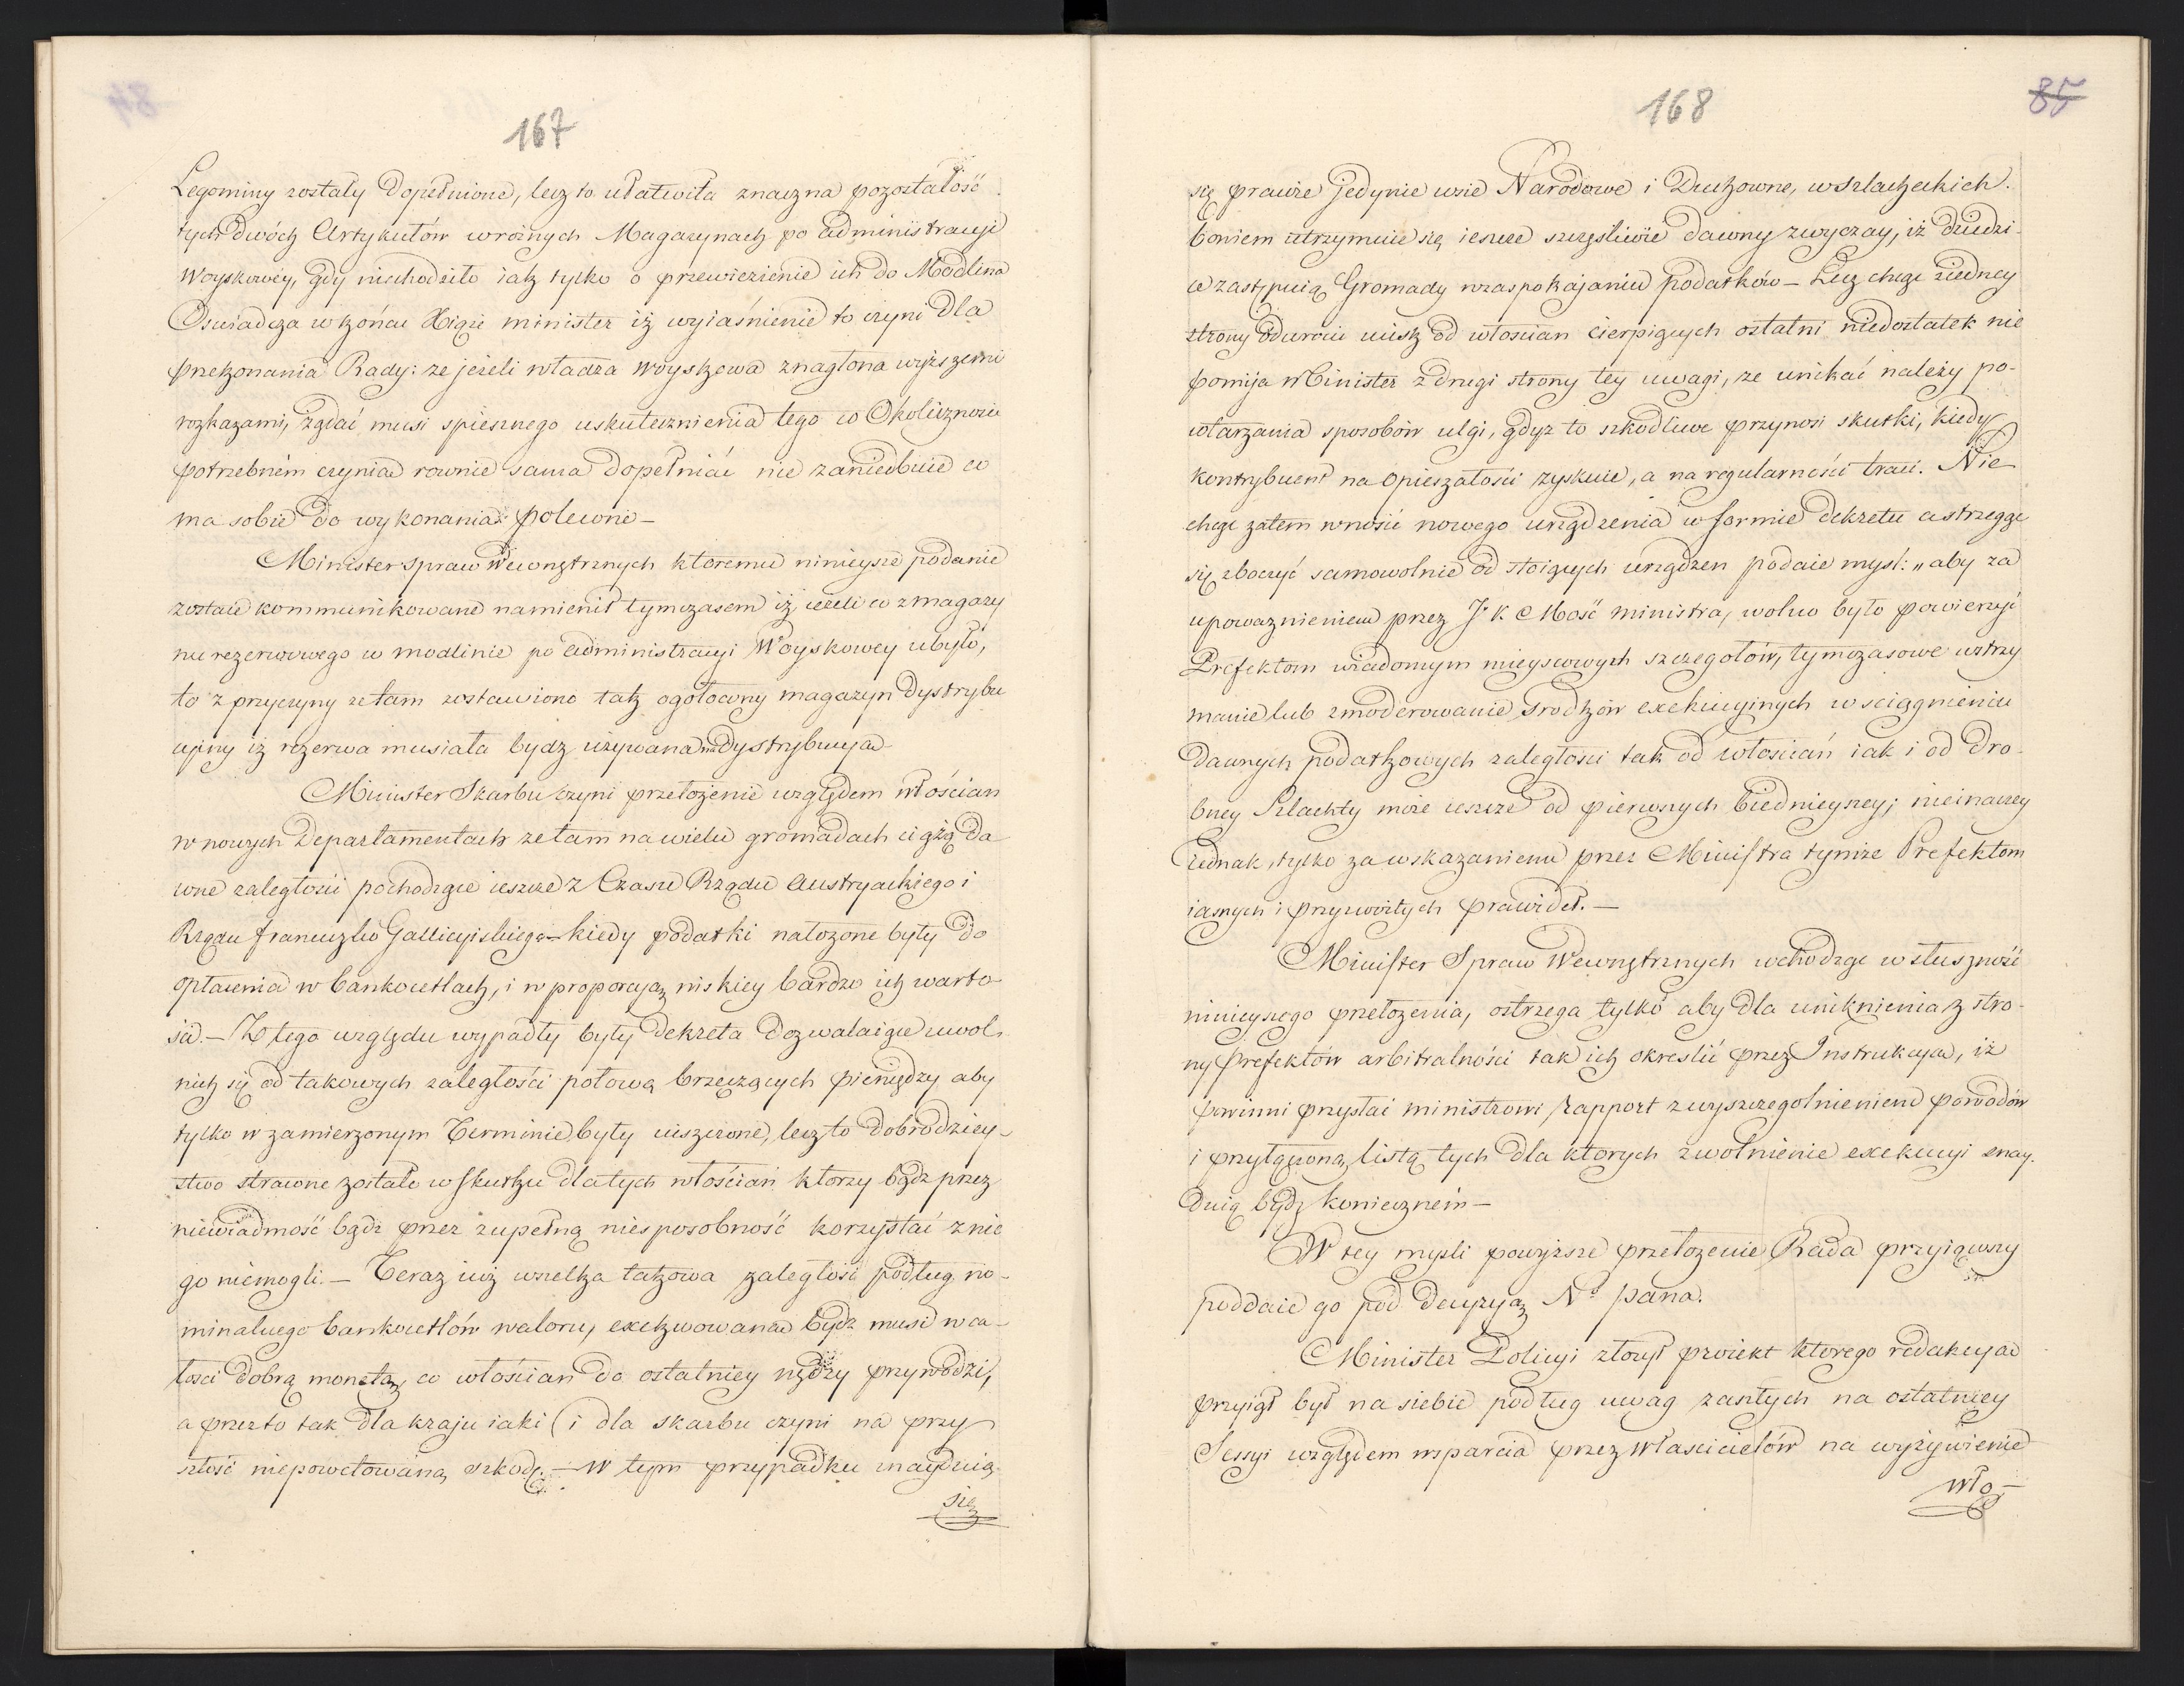 167
Legominy zostały dopełnione, lecz to ułatwiła znaczna pozostałość
tych dwóch Artykułów w rożnych Magazynach po administracyi
Woyskowéy, gdy niechodziło iak tylko o przewiezienie ich do Modlina
Oswiadcza w końcu Xiąże minister iż wyiaśnienie to czyni dla
przekonania Rady: ze jeżeli władza woyskowa znaglona wyższemi
rozkazami, żądać musi spiesznego uskutecznienia tego co Okoliczności
potrzebném czynią rownie sama dopełniać nie zaniedbuie co
ma sobie do wykonania polecone —
Minister spraw Wewnętrznych ktoremu ninieysze podanie
zostaie kommunikowane namienił tymczasem iż ieżeli co z magazy
nu rezerwowego w modlinie po administracyi Woyskowey ubyło,
to z przyczyny ze tam zostawiono tak ogołocony magazyn dystrybu
cyiny iż rezerwa musiała bydz używana na dystrybucyą
Minister Skarbu czyni przełożenie względem włościan
w nowych Departamentach ze tam na wielu gromadach ciążą da
wne zaległości pochodzące ieszcze z Czasu Rządu Austryackiego i
Rządu francuzko Gallicyiskiego — kiedy podatki nałozone były do
opłacenia w bankocetlach, i w proporcyą niskiey bardzo ich warto-
ści. — Z tego względu wypadły były dekreta dozwalaiące uwol
nich się od takowych zaległości połową brzęczących pieniędzy aby
tylko w zamierzonym Terminie były uiszczone, lecz to dobrodziey-
stwo stracone zostało w skutku dla tych włościan ktorzy bądz przez
niewiadmość bądz przez zupełną niesposobność korzystać z nie
go niemogli. — Teraz iuż wszelka takowa zaległość podług no-
minalnego bankocetlów waloru, exekwowana bydz musi w ca-
łosci dobrą monetą, co włościan do ostatniey nędzy przywodzi,
a przez to tak dla kraju iak i (i dla skarbu czyni na przy
szłość niepowetowaną szkodę. — W tym przypadku znayduią
się
168
85
się prawie jedynie wsie Narodowe i Duchowne, w szlacheckich
boniem utrzymuie się ieszcze szczęsliwie dawny zwyczay, iż dziedzi-
ce zastępuią Gromady w zaspokajaniu podatków — Lecz chcąc ziedney
strony odwrócić ucisk od włoscian cierpiących ostatni niedostatek nie
pomija Minister z drugi strony tey uwagi, ze unikać należy po-
wtarzania sposobów ulgi, gdyz to szkodliwe przynosi skutki, kiedy
kontrybuent na opieszałości zyskuie, a na regularności traci. Nie
chcąc zatem wnosić nowego urządzenia w formie dekretu a strzegąc
się zboczyć samowolnie od stoiących urządzen podaie mysl: „aby za
upowaznieniem przez J. K. Mość ministra, wolno było powierzyć
Prefektom wiadomym mieyscowych szczegołów, tymczasowe wstrzy
manie lub zmoderowanie srodków exekucyinych w sciągnieniu
dawnych podatkowych zaległości tak od włościan iak i od dro-
bney Szlachty może ieszcze od pierwszych biednieyszey; nieinaczey
iednak, tylko za wskazaniem przez Ministra tymże Prefektom
iasnych i przyzwoitych prawideł. —
Minister Spraw Wewnętrznych wchodząc w słuszność
ninieyszego przełozenia, ostrzega tylko aby dla uniknienia z stro-
ny Prefektów arbitralności tak ich okreslić przez Instrukcyą, iż
powinni przysłać ministrowi rapport z wyszczegolnieniem powodów
i przyłączoną listą tych dla ktorych zwolnienie exekucyi znay.
duią bydź koniecznem —
W tey mysli powyższe przełozenie Rada przyiąwszy
poddaie go pod decyzyą Nº pana.
Minister Policyi złozył proiekt ktorego redakcyą
przyiął był na siebie podług uwag zaszłych na ostatniey
Sessyi względem wsparcia przez właścicielów na wyżywienie
wło-